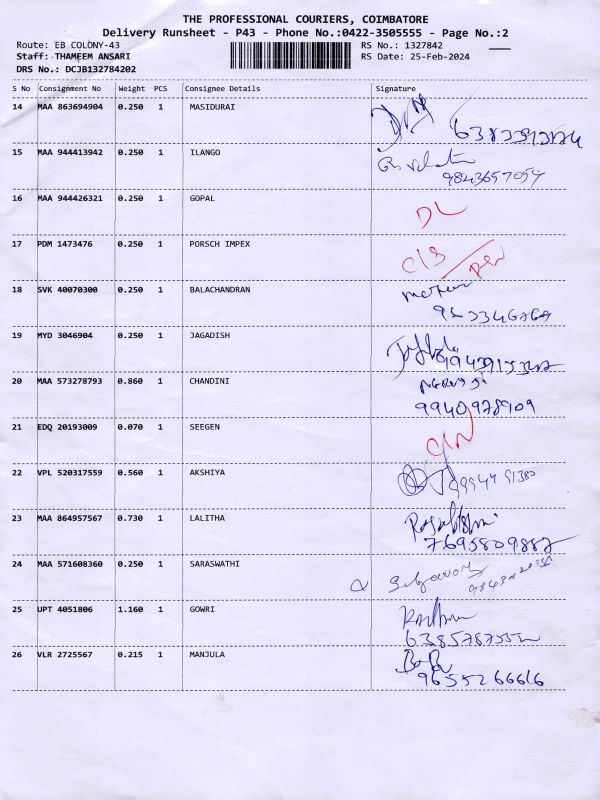 THE PROFESSIONAL COURIERS, COIMBATORE
Delivery Runsheet - P43 - Phone No.:0422-3505555 - Page No.:2
Route: EB COLONY-43 RS No.: 1327842
Staff: THAMEEM ANSARI RS Date: 25-Feb-2024
DRS No.: DCJB132784202
S No Consignment No Weight PCS Consignee Details Signature
14 MAA 863694904 0.250 1 MASIDURAI
15 MAA 944413942 0.250 1 ILANGO
9843657054
16 MAA 944426321 0.250 1 GOPAL DL
17 PDM 1473476 0.250 1 PORSCH IMPEX C/S
18 SVK 40070300 0.250 1 BALACHANDRAN
19 MYD 3046904 0.250 1 JAGADISH
20 MAA 573278793 0.860 1 CHANDINI
9940978909
21 EDQ 20193009 0.070 1 SEEGEN C/N
22 VPL 520317559 0.560 1 AKSHIYA
23 MAA 864957567 0.730 1 LALITHA
7695809882
24 MAA 571608360 0.250 1 SARASWATHI
25 UPT 4051806 1.160 1 GOWRI
26 VLR 2725567 0.215 1 MANJULA
9655266616